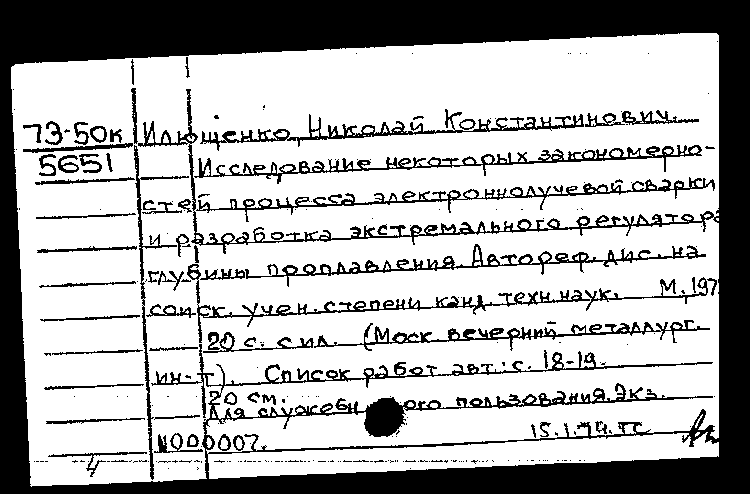 73-50к Илющенко, Николай Константинович.
5651 Исследование некоторых закономерно-
стей процесса электроннолучевой сварки
и разработка экстремального регулятора
глубины проплавления. Автореф. дис. на
соиск. учен. степени канд. техн. наук. М., 197
20 с. с ил. (Моск вечерний металлург.
ин-т). Список работ авт.: с. 18-19.
20 см.
Для служебн ого пользования. Экз.
N000007. 15.1.74.
4